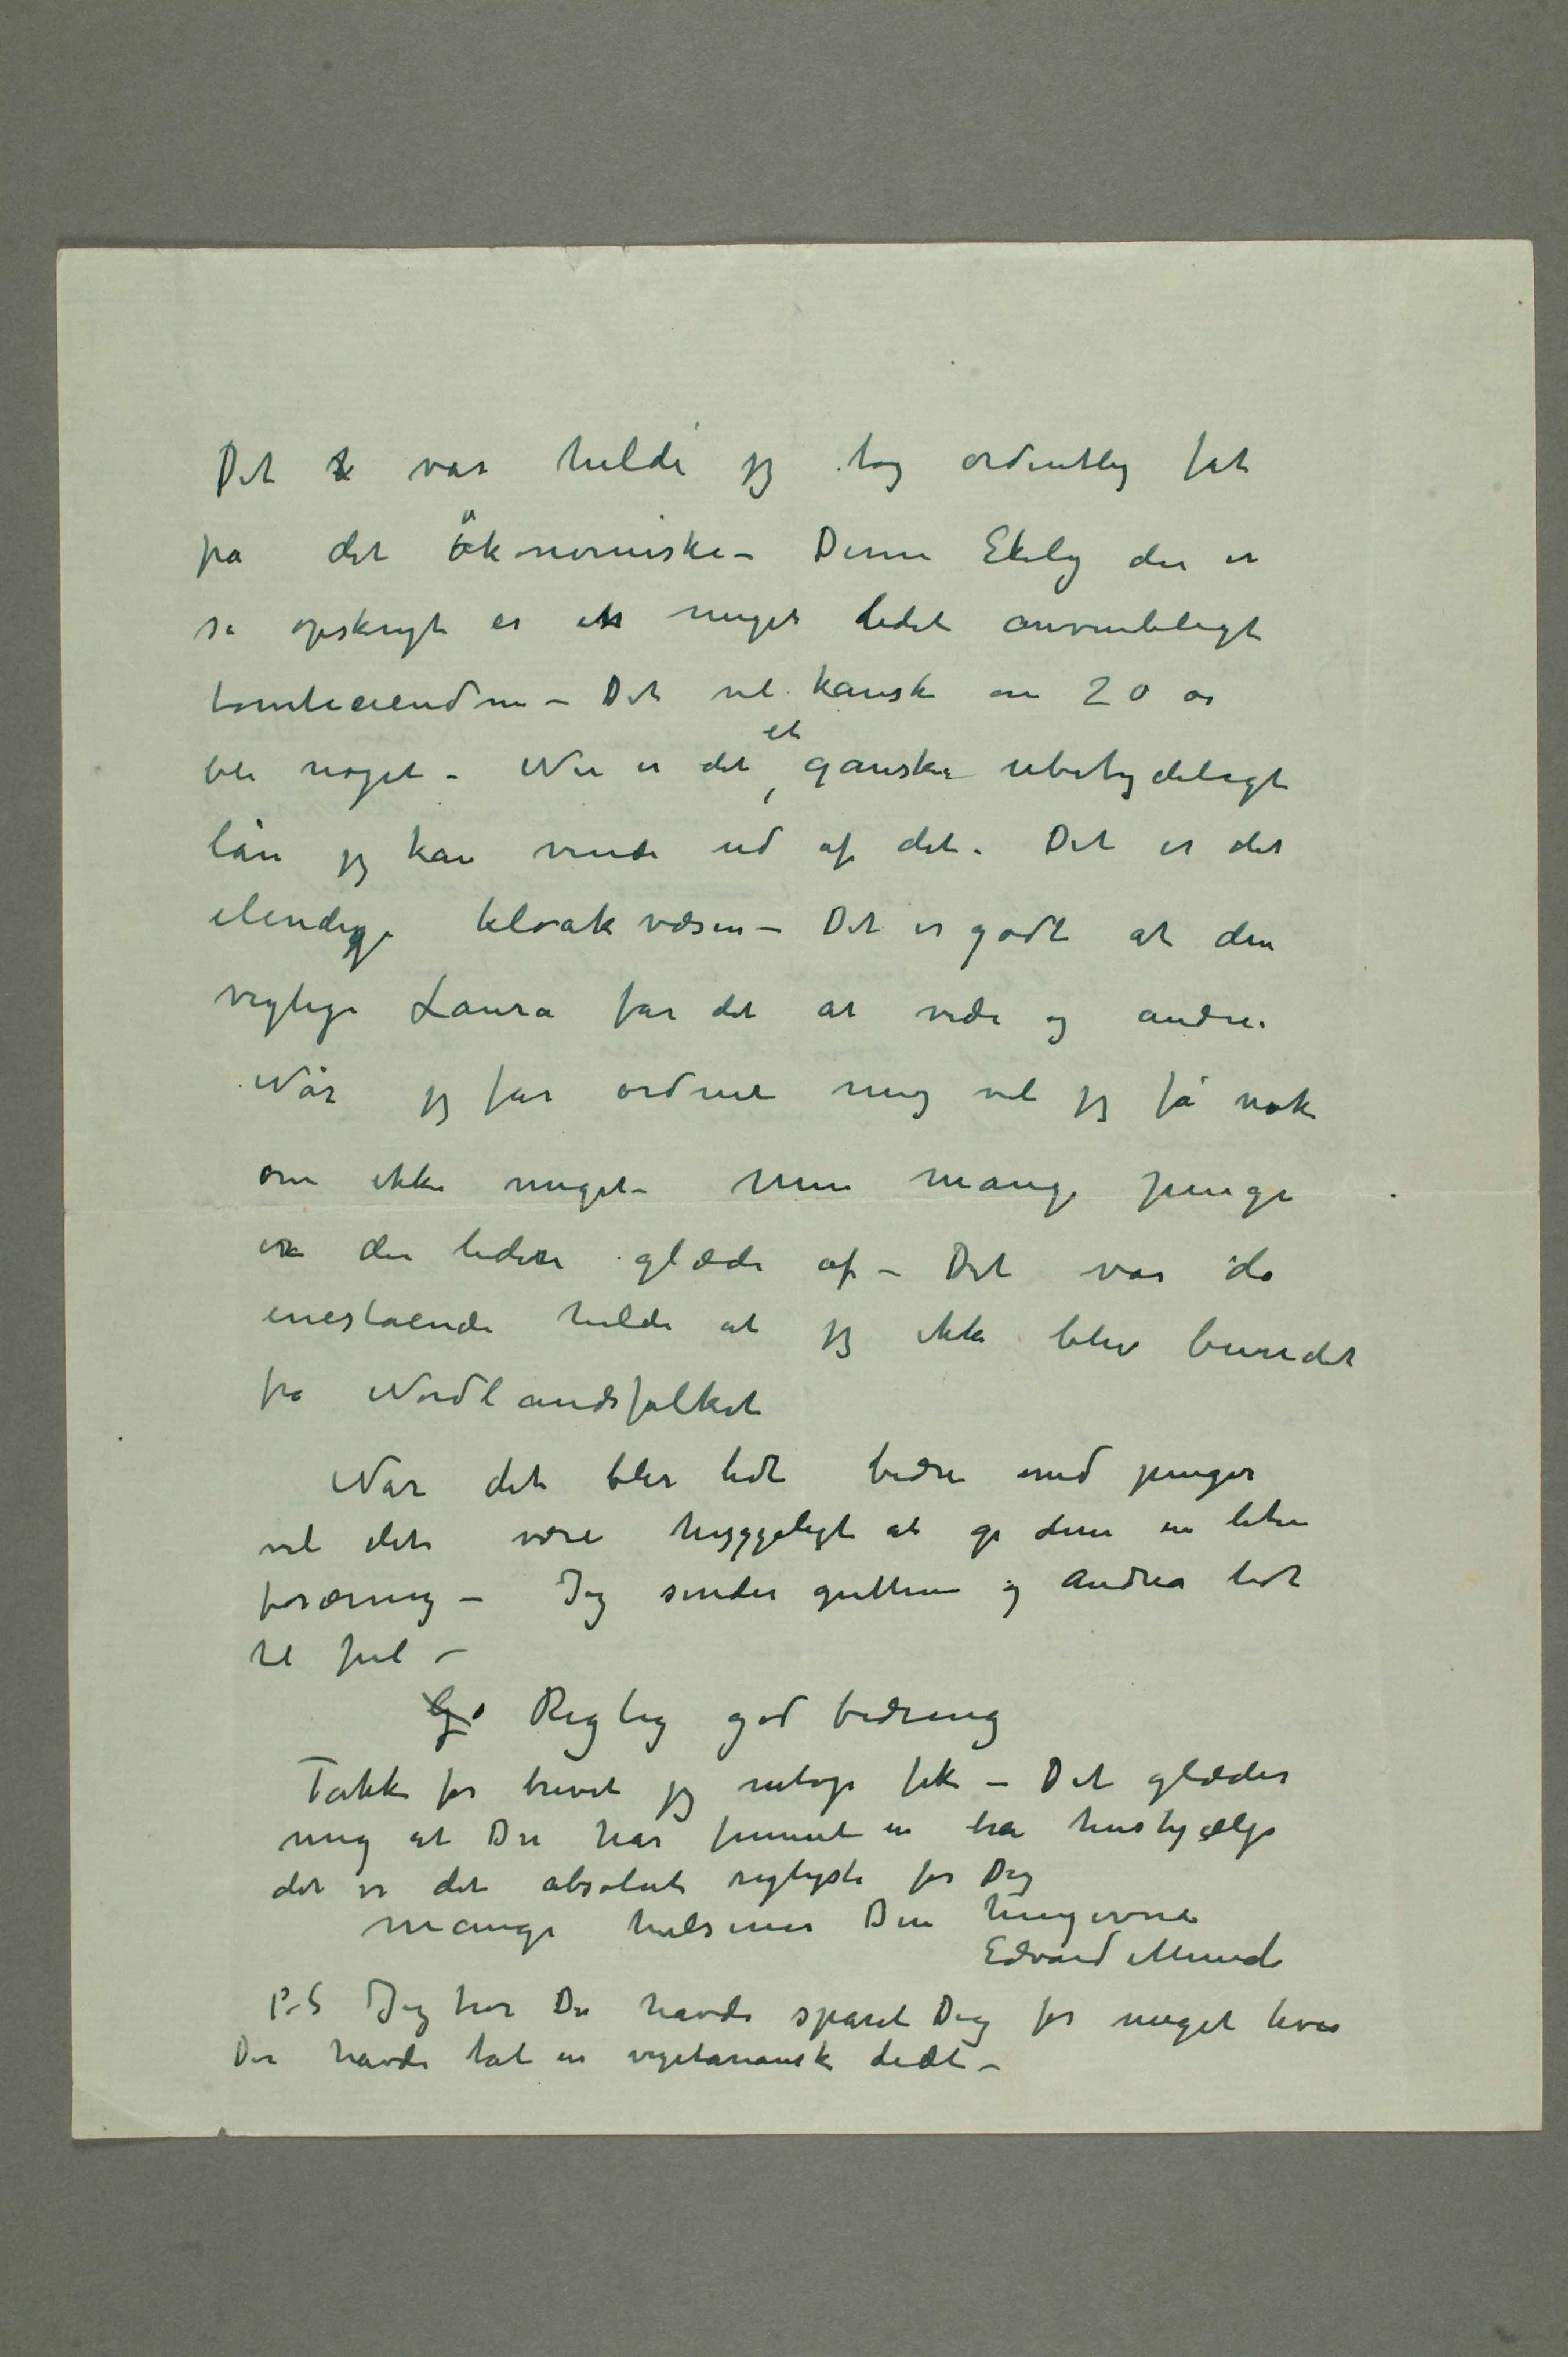 Det var helde jeg tog ordentlig fat
på det ökonomiske – Denne Ekely der er
så opskrygt er en meget lidet anvendeligt
tomteeiendom – Det vil kanske om 20 år
bli noget – Nu er det et ganske ubetydeligt
lån jeg kan vinde ud af det. Det er det
elendige kloakvæsen – Det er godt at den
vigtige Laura får det at vide og andre.
Når jeg får ordnet mig vil jeg få nok
om ikke meget – Men mange penge
er der liden glæde af – Det var da
enestående helde at jeg ikke blev bundet
fra Nordlandsfolket
Når det blir lidt bedre med penger
vil det være hyggeligt at gi dem en liten
foræring – Jeg sender guttene og Andrea lidt
til jul –
Rigtig god bedring
Takk for brevet jeg netop fik – Det glæder
mig at Du har funnet en bra hushjælp
det er det absolut rigtigste for Dig
Mange hilsener Din hengivne
Edvard Munch
P.S Jeg tror Du havde sparet Dig for meget hvis
Du havde tat en vegetariansk diæt –